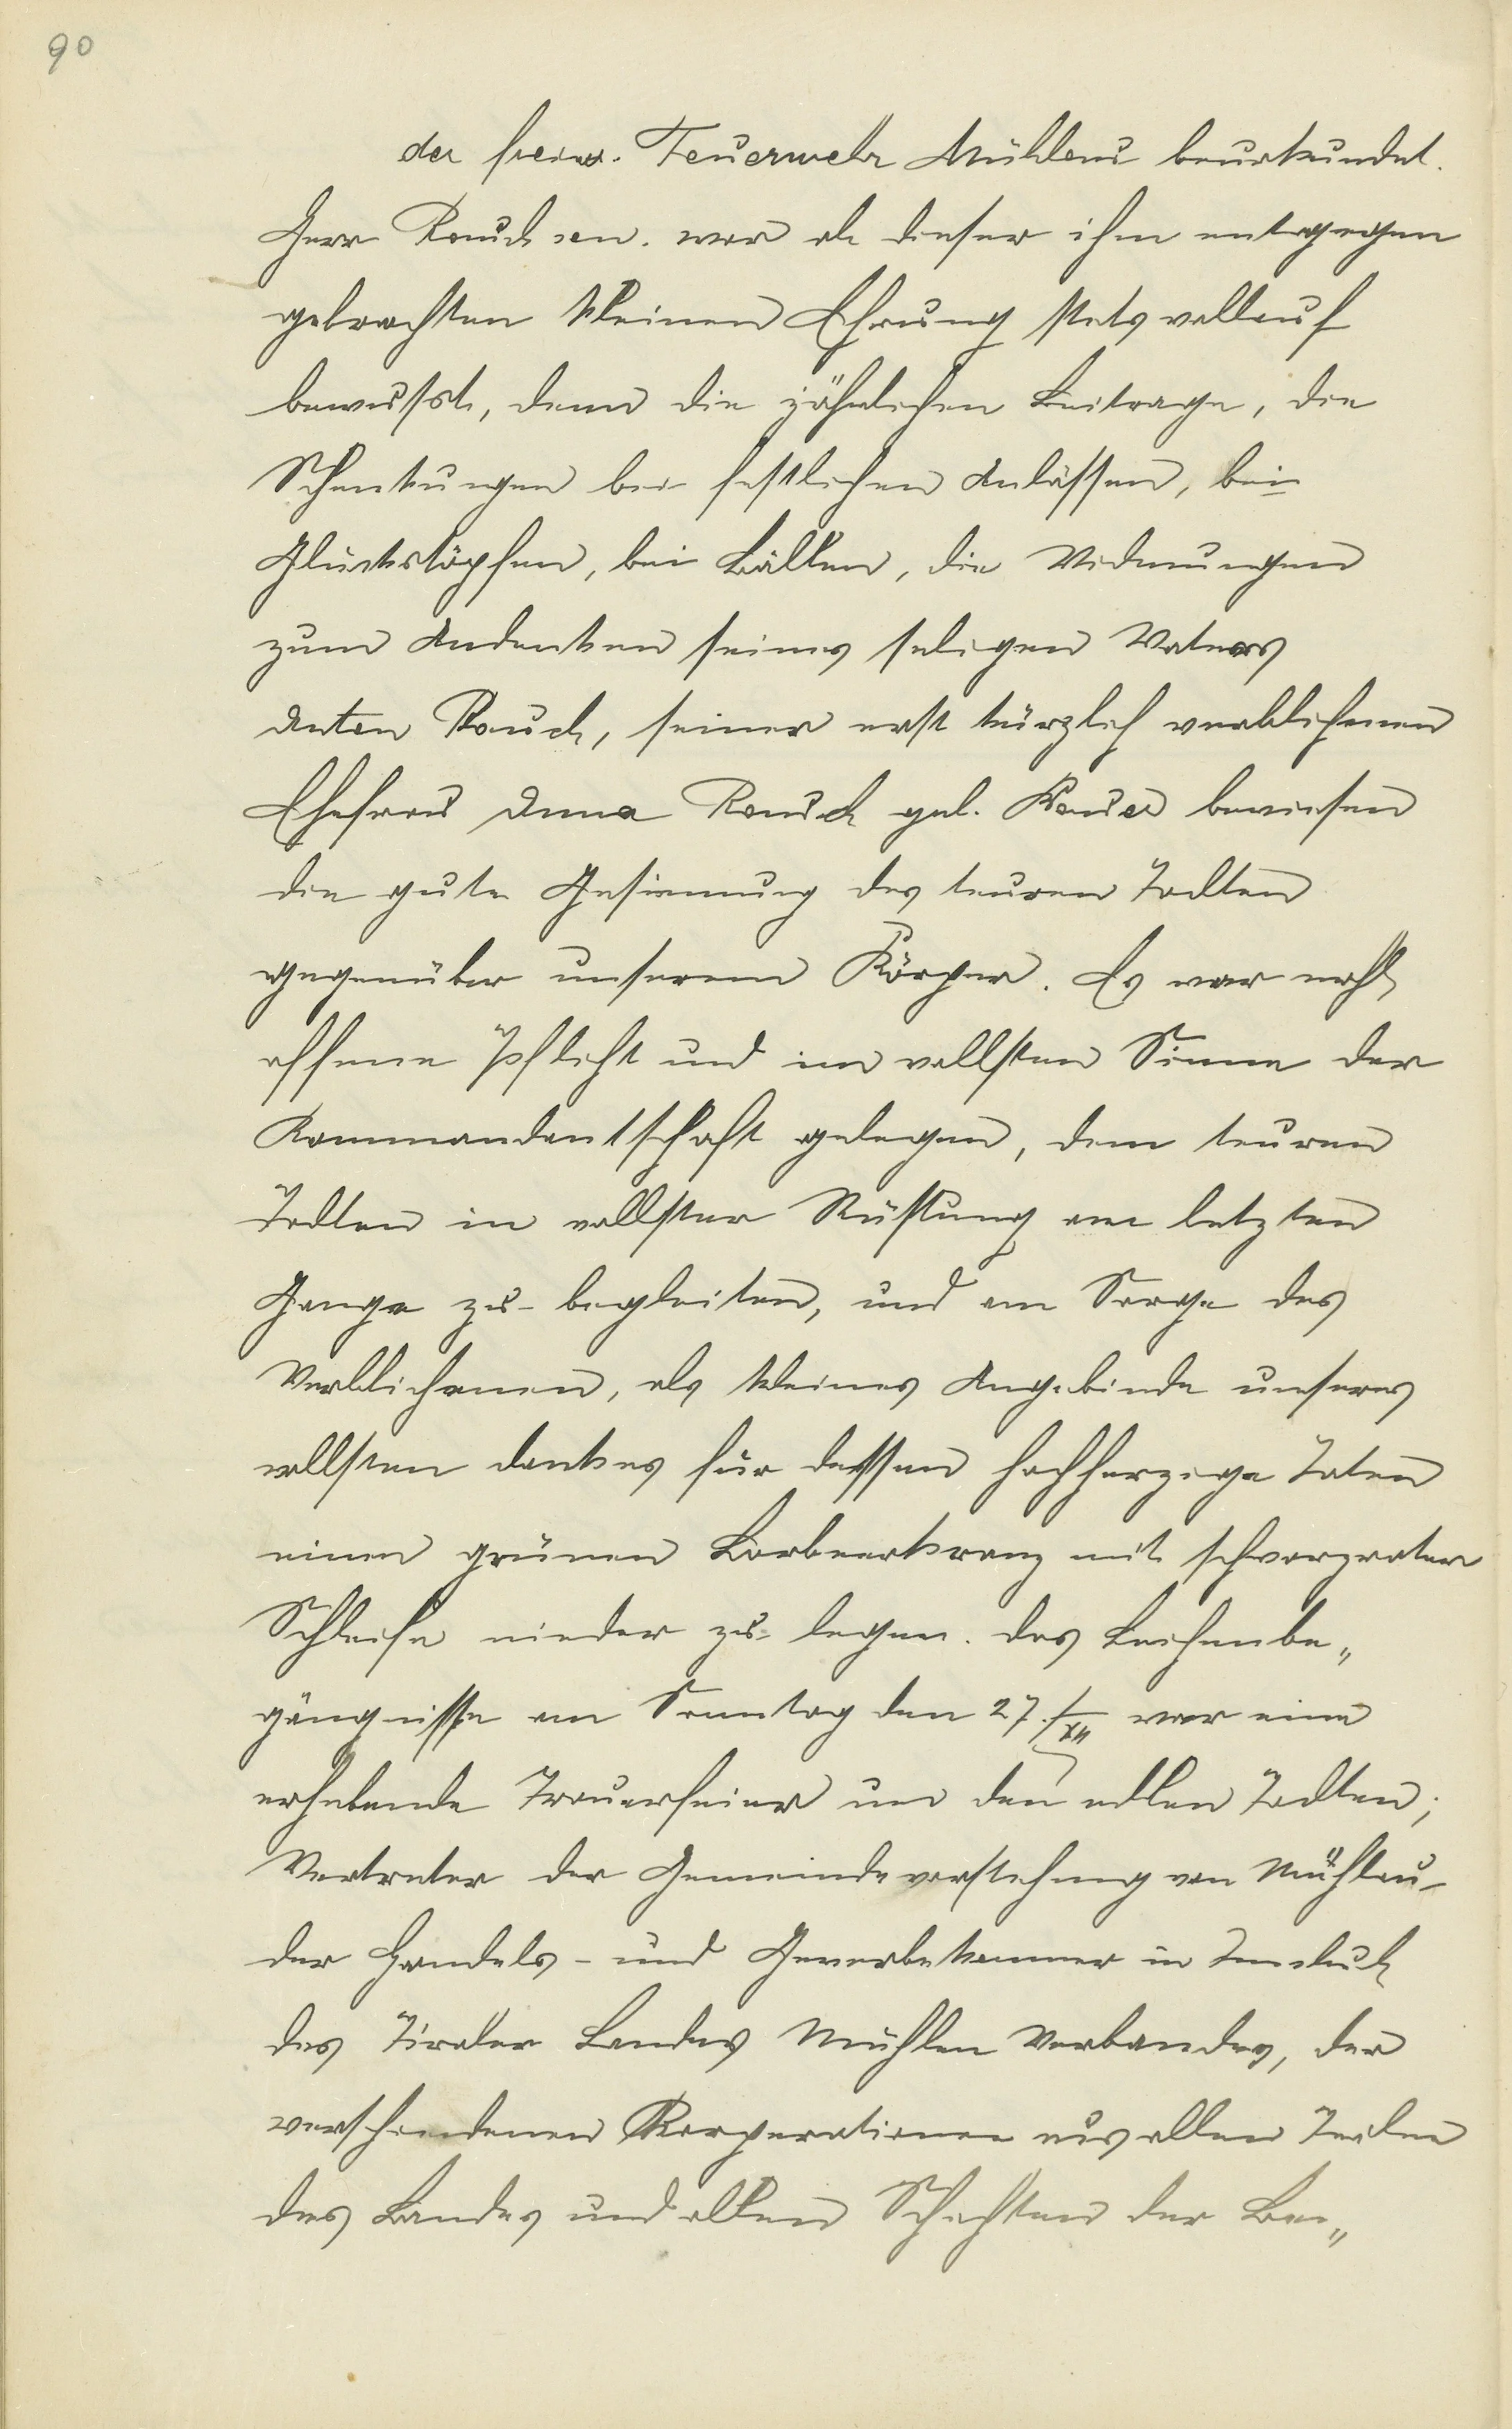 90
der freiw. Feuerwehr Mühlau beurkundet.
Herr Rauch sen. war ob dieser ihm entgegen
gebrachten kleinen Ehrung stets vollauf
bewusst, denn die jährlichen Beitrage, die
Schenkungen bei festlichen Anlässen, bei
Glückstöpfen, bei Bällen, die Widmungen
zum Andenken seines seligen Vaters
Anton Rauch, seiner erst kürzlich verblichenen
Ehefrau Anna Rauch geb. bewiesen
die gute Gesinnung des teuren Todten
gegenüber unserem Körper. Es war wohl
offene Pflicht und im vollsten Sinne der
Kommandantschaft gelegen, dem teuren
Todten in vollster Rüstung am letzten
Gange zu begleiten, und am Sarge des
Verblichenen, als kleines Angebinde unseres
vollsten Dankes für dessen hochherzige Taten
einen grünen Lorbeerkranz mit schwarzroter
Schleife nieder zu legen. Das Leichenbe„
gängnisse am Sonntag den 27./XII war eine
erhebende Trauerfeier um den edlen Todten;
Vertreter der Gemeindevorstehung von Mühlau
der Handels- und Gewerbekammer in Innsbruck
des Tiroler Landes Mühlen Verbandes, der
verschiedenen Korporationen aus allen Teilen
des Landes und allen Schichten der Be„